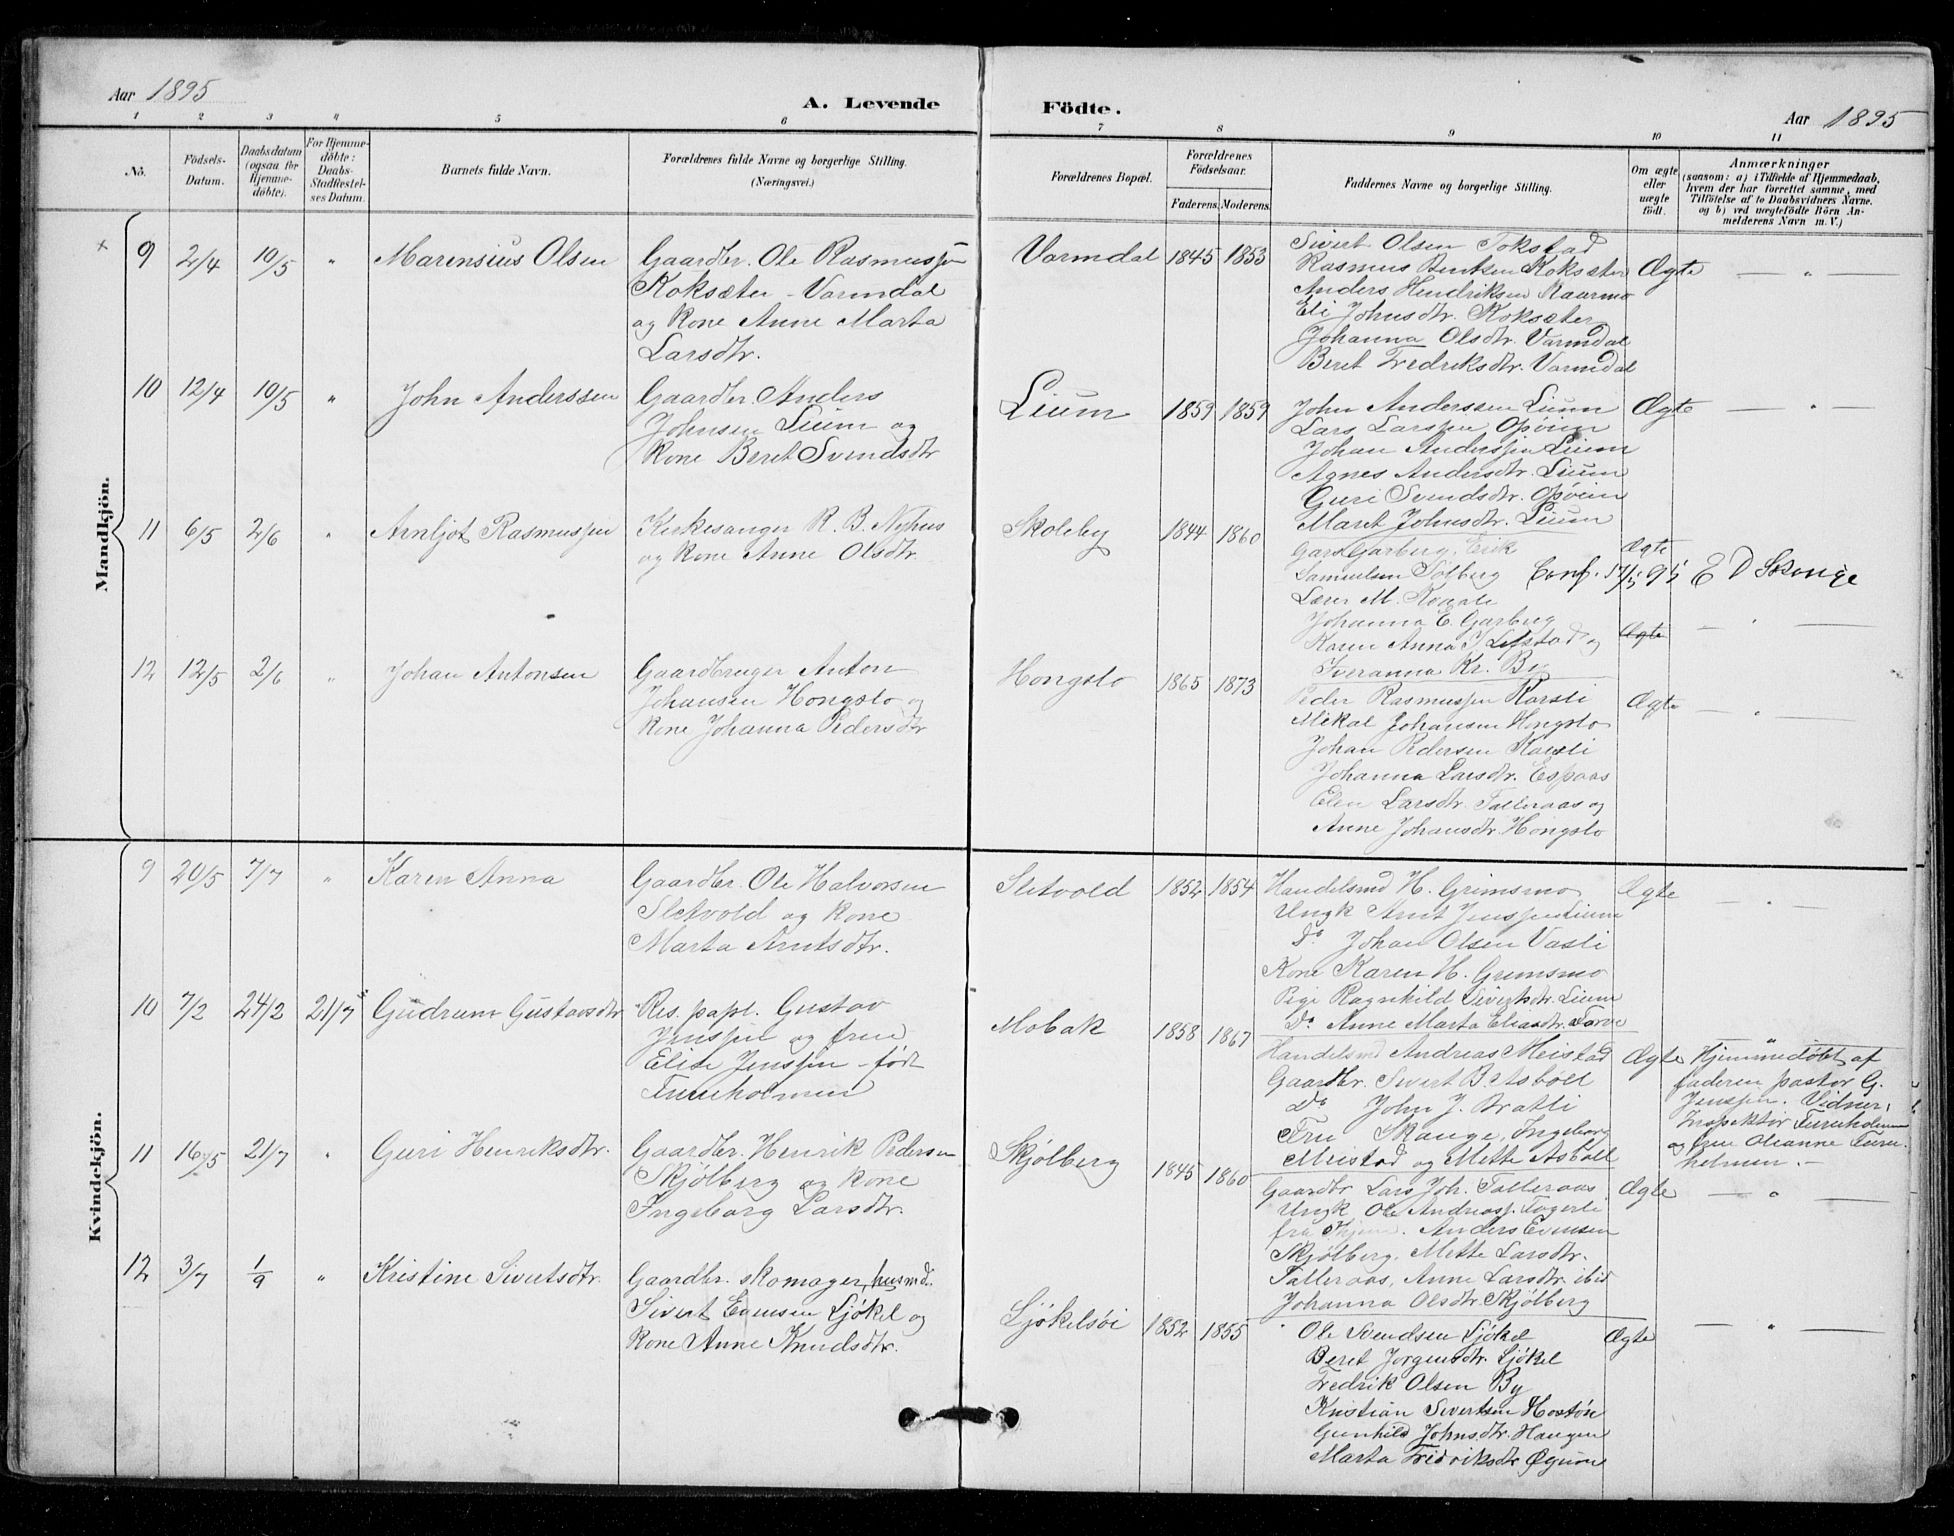 Aar 1895
A. Levende
Födte.
Aar 1895
1 2 3 4 5 6 7 8 9 10 11
No.
Födsels-
Datum.
Daabsdatum
(ogsaa for
Hjemme-
döbte).
For Hjemme-
döbte:
Daabs-
Stadfæstel-
ses Datum.
Barnets fulde Navn.
Forældrenes fulde Navne og borgerlige Stilling.
(Næringsvei.)
Forældrenes Bopæl.
Forældrenes
Födselsaar.
Faderens. Moderens.
Faddernes Navne og borgerlige Stilling.
Om ægte
eller
uægte
födt.
Anmærkninger
(saasom: a) i Tilfælde af Hjemmedaab,
hvem der har forrettet samme, med
Tilföielse af to Daabsvidners Navne.
og b) ved uægtefödte Börn An-
melderens Navn m. V.)
Mandkjön.
× 9 2/4 10/5 " Marensius Olsen
Gaardbr. Ole Rasmussen
Koksæter - Varmdal
og kone Anne Marta
Larsdtr.
Varmdal 1845 1853
Sivert Olsen Tokstad
Rasmus Bentsen Koksæter
Anders Hendriksen Kaarmo
Eli Johnsdtr. Koksæter
Johanna Olsdtr. Varmdal
Beret Fredriksdtr. Varmdal
Ægte — " —
10 12/4 10/5 " John Anderssen
Gaardbr. Anders
Johnsen Lium og
kone Beret Svendsdtr
Lium 1859 1859
John Anderssen Lium
Lars Larssen Opöien
Johan Anderssen Lium
Agnes Andersdtr. Lium
Guri Svendsdtr. Opöien
Maret Johnsdtr. Lium
Ægte — " —
11 6/5 2/6 " Arnljot Rasmussen
Kirkesanger R. B. Nyhus
og kone Anne Olsdtr.
Skoleby 1844 1860
Lars Garberg, Erik
Samuelsen Solberg
Lærer M.
Johanna E. Garberg
Karen Anna Lefstad og
Iveranna Kr. By
Ægte
Conf. 17/5 95 E D Skauge
Ægte — " —
12 12/5 2/6 " Johan Antonsen
Gaardbruger Anton
Johansen Hongslo og
kone Johanna Pedersdtr
Hongslo 1865 1873
Peder Rasmussen Karsli
Mikal Johansen Hongslo
Johan Pedersen Karsli
Johanna Larsdtr. Espaas
Elen Larsdtr. Talleraas og
Anne Johansdtr. Hongslo
Ægte — "
Kvindekjön.
9 20/5 7/7 " Karen Anna
Gaardbr. Ole Halvorsen
Sletvold og kone
Marta Arntsdtr.
Sletvold 1852 1854
Handelsmd H. Grimsmo
Ungk Arnt Jenssen Lium
Do. Johan Olsen Vasli
Kone Karen H. Grimsmo
Pige Ragnhild Sivertsdtr. Lium
Do. Anne Marta Eliasdtr. Torve
Ægte — " —
10 7/2 24/2 21/7 Gudrun Gustavsdtr
Res. kapl. Gustav
Jenssen og frue
Elise Jenssen - født
Furuholmen
Mobak 1858 1867
Handelsmd Andreas Meistad
Gaardbr. Sivert B. Asböll
Do John J. Bratli
Fru Skauge, Ingeborg
Meistad og Mette Asböll
Ægte
Hjemmedöbt af
faderen pastor G.
Jenssen. Vidner:
Inspektör Furuholmen
og frue Oleanne Furu-
holmen. —
11 16/5 21/7 " Guri Henriksdtr.
Gaardbr. Henrik Pedersen
Skjölberg og kone
Ingeborg Larsdtr.
Skjölberg 1845 1860
Gaardbr Lars Joh. Talleraas
Ungk Ole Andreass. Fagerli
fra . Anders Evensen
Skjölberg, Mette Larsdtr.
Talleraas, Anne Larsdtr. ibid
Johanna Olsdtr. Skjölberg
Ægte — " —
12 3/7 1/9 " Kristine Sivertsdtr.
Gaardbr. skomager, husmd.
Sivert Evensen Ljökel og
kone Anne Knudsdtr.
Ljökelsöi 1852 1855
Ole Svendsen Ljökel
Beret Jorgensdtr. Ljökel
Fredrik Olsen By
Kristian Sivertsen Hostön
Gunhild Johnsdtr. Haugen
Marta Fredriksdtr
Ægte — " —